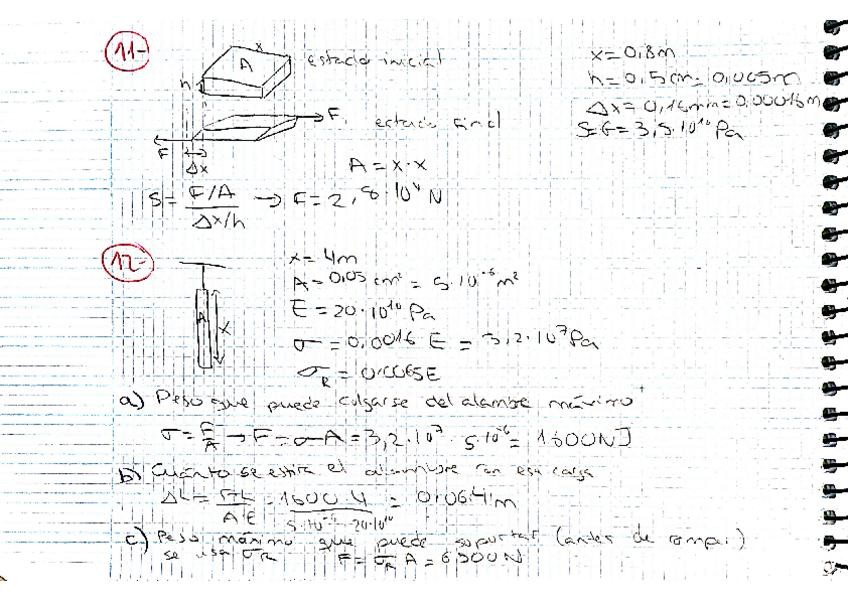 11-
A x
estado inicial
x = 0,8m
h
h = 0,5cm = 0,005m
Δx = 0,16mm = 0,00016m
F, estado final
S=G = 3,5·10¹⁰ Pa
F
Δx
A = x·x
S = F/A / Δx/h → F = 2,8·10⁴ N
12-
x = 4m
A = 0,05 cm² = 5·10⁻⁶ m²
A x
E = 20·10¹⁰ Pa
σ = 0,0016 E = 3,2·10⁷ Pa
σR = 0,0065E
a) Peso que puede colgarse del alambre máximo
σ = F/A → F = σA = 3,2·10⁷ · 5·10⁻⁶ = 1600N]
b) Cuánto se estira el alambre con esa carga
ΔL = FL / A·E = 1600·4 / 5·10⁻⁶·20·10¹⁰ = 0,064m
c) Peso máximo que puede soportar (antes de romper)
se usa σR F = σR A = 6500N